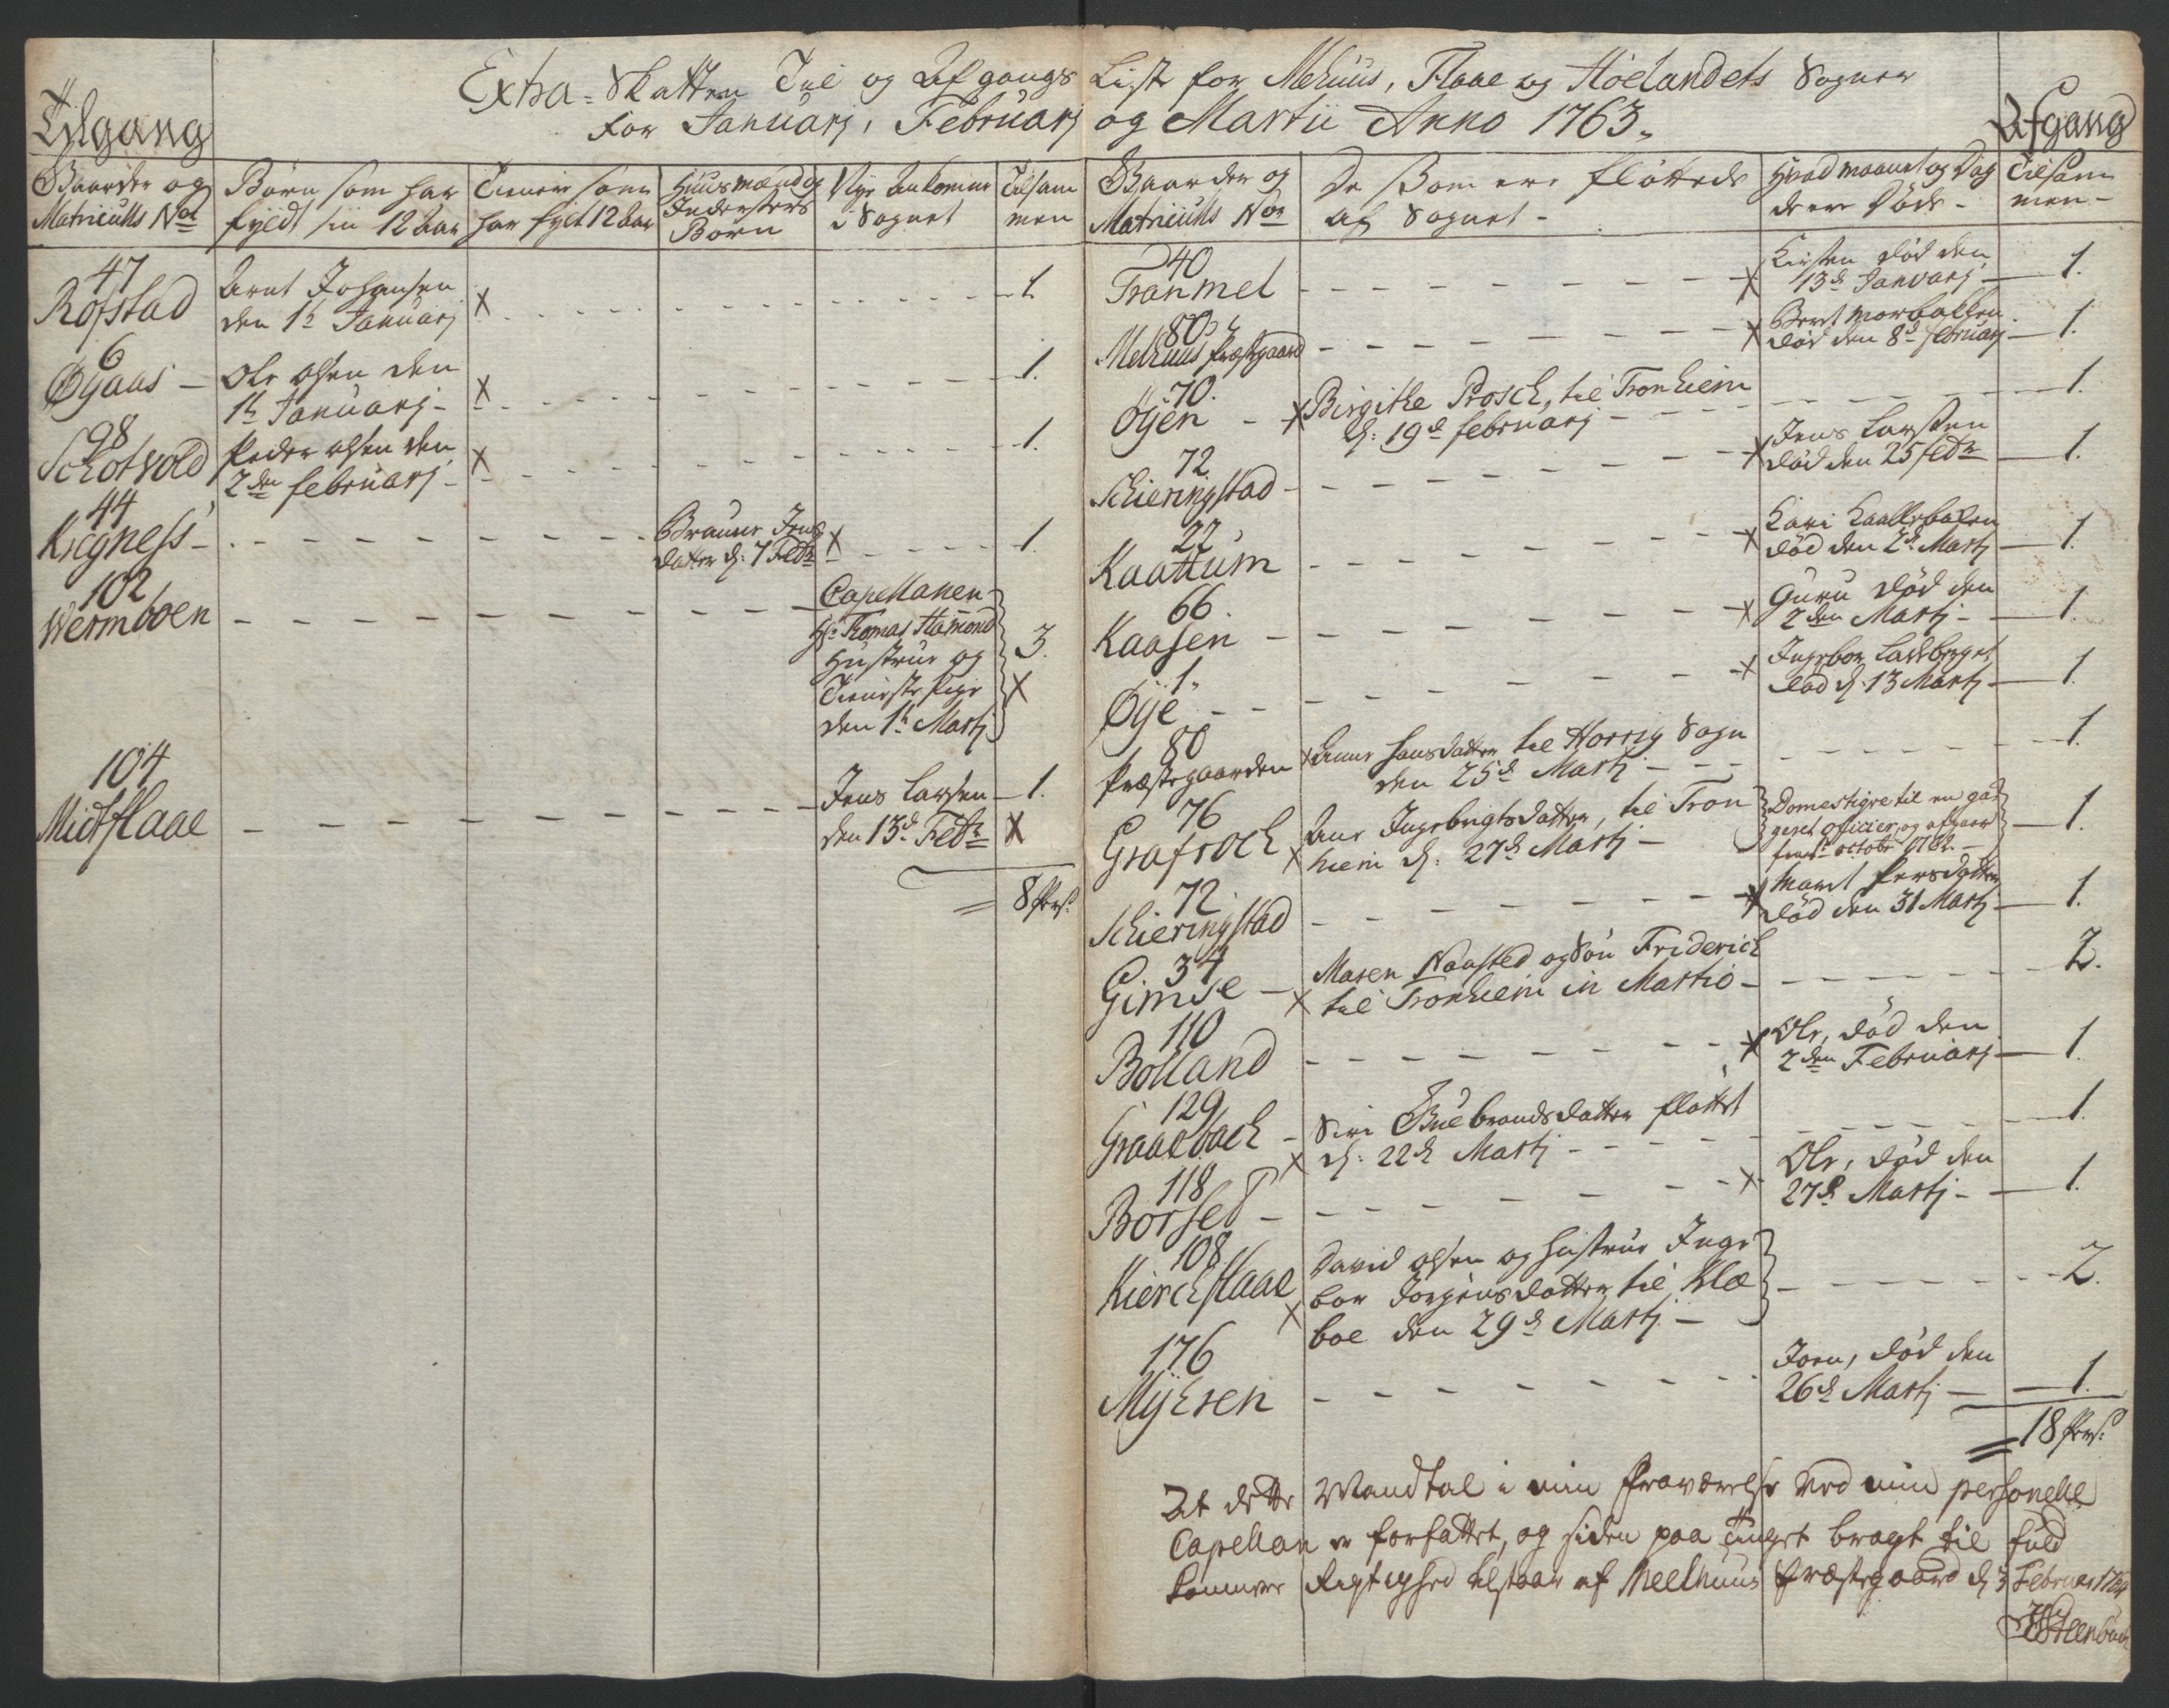 Extra-Skatten Til og Afgangs List for Mehuus, Flaae og Höelandets Sogner
for Januarj, Februarj og Martii Anno 1763.
Tilgang
Gaarder og
Matriculs No
Börn som har
fyldt sin 12 Aar
Tienere som
har fyldt 12 Aar
Huusmænd og
Indersters
Börn
Nye Ankomne
i Sognet
Tilsam
men
47
Rofstad
Arnt Johansen
den 1te Januarj
X
1.
6
Øyaas
Ole Olsen den
1te Januarj
X
1.
98
Schotvold
Peder Olsen den
2den Februarj
X
1.
44
Kregness
Jens
datter d: 7 Febr
X
1.
102
Wermboen
Capellanen
Hr Thomas Hamond
Hustrue og
Tieneste Pige
den 1te Martj
3.
X
104
Midtflaae
Jens Larsen
den 13de Febr
1.
X
8 Pers.
Afgang
Gaarder og
Matriculs No
De Som ere flöttede
af Sognet
Hvad maanet og Dag
de ere Döde
Tilsam
men
40
Tranmel
X
Kirsten död den
13de Januarj
1.
80
Mehuus Præstgaard
X
Berit Morbakken
död den 8de Februarj
1.
70.
Öyen
X Birgithe Prosch, til Tronhiem
d: 19de Februarj
1.
72
Schieringstad
X
Jens Larsen
död den 25 Febr
1.
22
Kaattum
X
Kari
död den 2de Martj
1.
66.
Kaasen
X
Guru död den
2den Martj
1.
1.
Øye
X
Ingebor
död d: 13 Martj
1.
80
Præstegaarden
X Anne Hansdatter til Horrig Sogn
den 25de Martj
1.
76
Grafroch
X
Ane Ingebrigtsdatter, til Tron
hiem d: 27de Martj
Domestiqve til en
Officier, og afgaar
fra octobr 1762.
1.
72.
Schieringstad
X
Marit Persdatter
död den 31 Martj
1.
34
Gimse
X
Maren Naasted og Sön Friderich
til Tronhiem in Martio
2.
110
Bolland
X
Ole, död den
2den Februarj
1.
129
Graaebach
X
Siri Guebrandsdatter flöttet
d: 22de Martj
1.
118
Borset
X
Ole, död den
27de Martj
1.
108
Kierchflaae
X
David Olsen og Hustrue Inge
bor Jörgensdatter til Klæ
boe den 29de Martj
2.
176
Myhren
Joen, död den
26de Martj
1.
18 Pers.
At dette Mandtal i min Fraværelse ved min personelle
Capellan er forfattet, og siden paa Tinget bragt til fuld
kommen Rigtighed tilstaar af Meelhuus Præstegaard d: 3 Februar 1764
Steenbuch